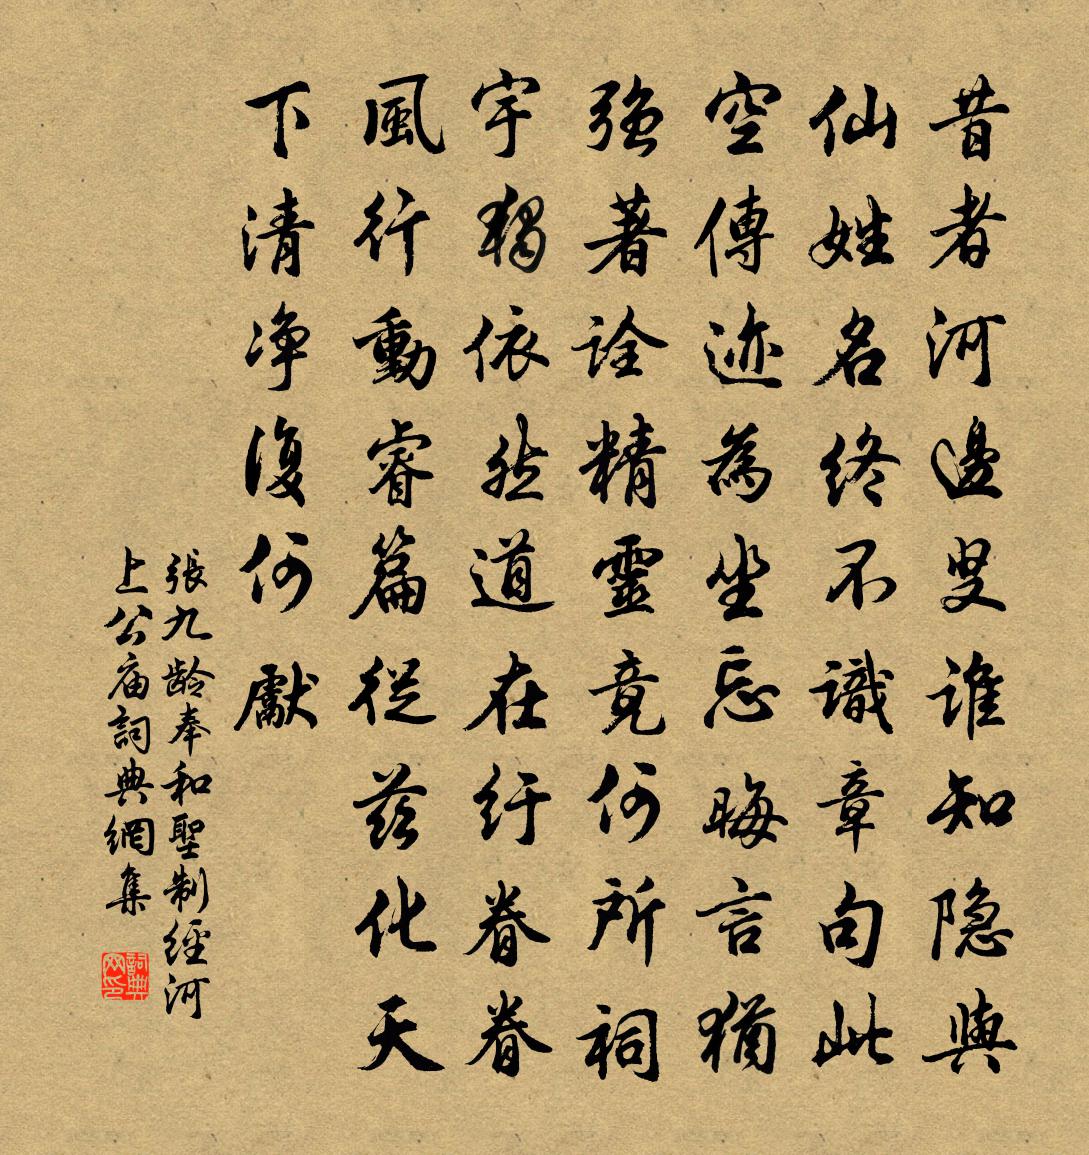 昔者河邊叟誰知隐與
仙姓名終不識章句此
空傳迹為坐忘晦言猶
強著詮精靈竟何所祠
宇獨依然道在紆眷眷
風行動睿篇從茲化天
下清净復何獻
張九龄奉和聖制經河
上公庙詞典網集
詞典网印